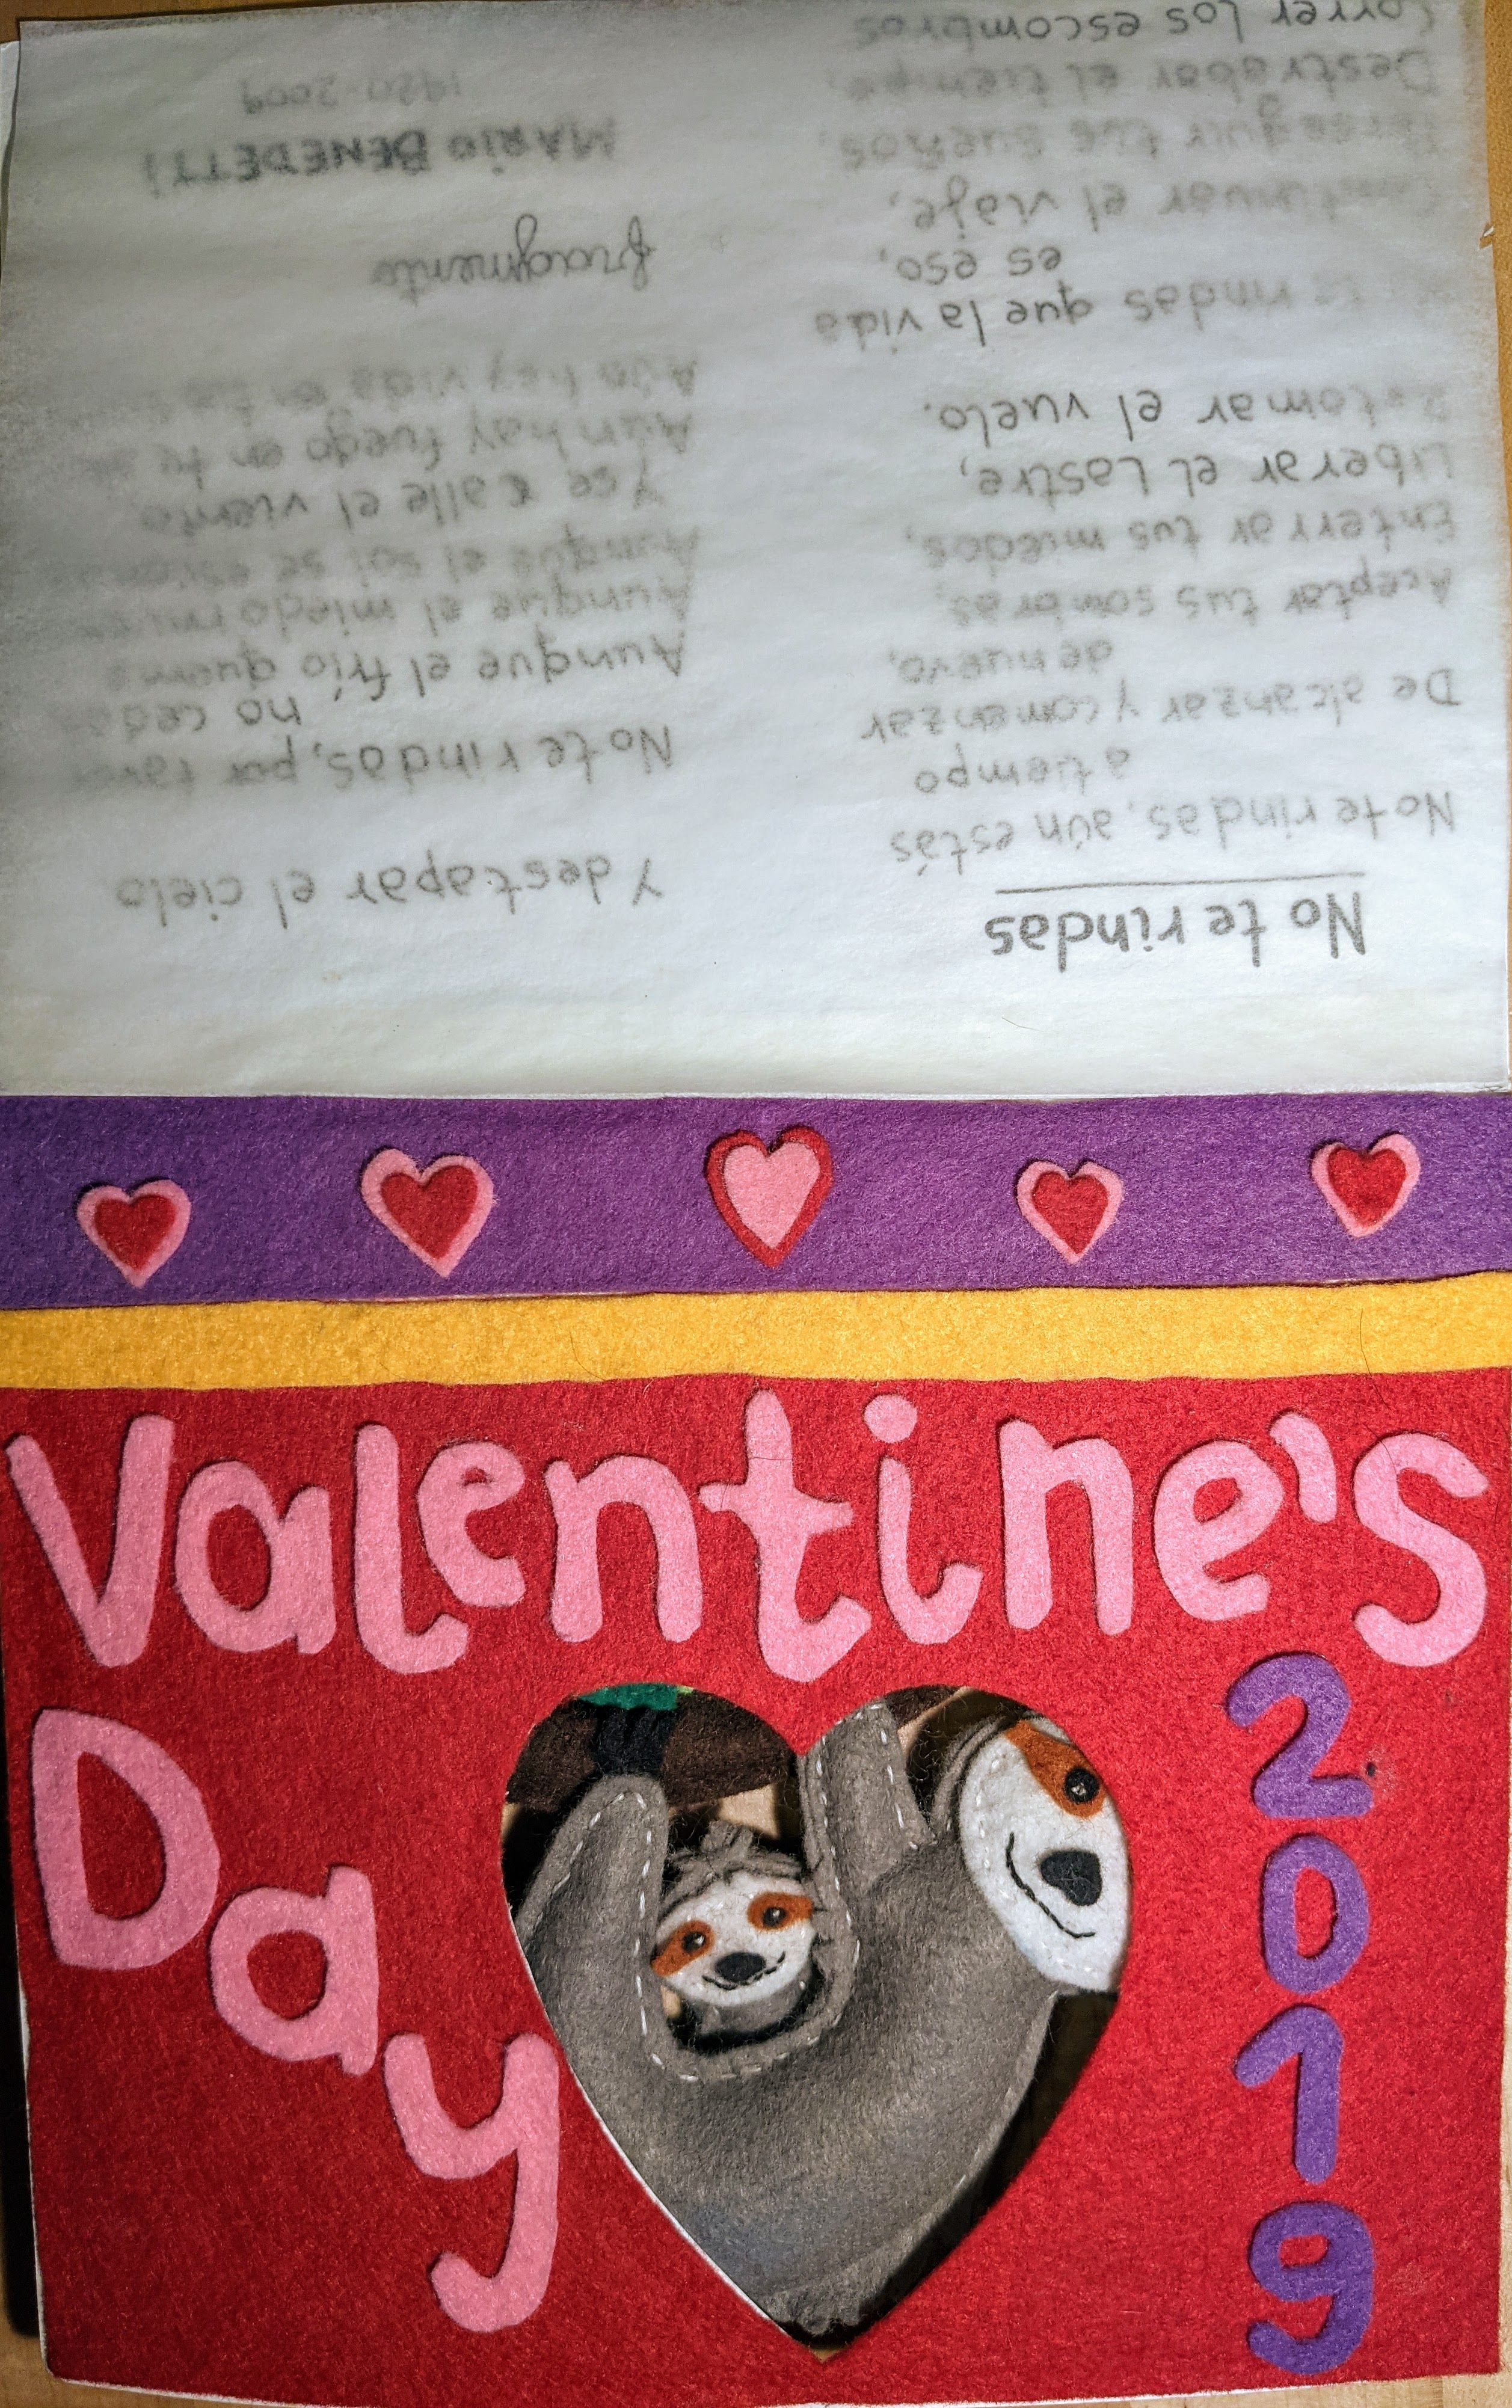 Valentine's
Day
2019
No te rindas
No te rindas, aún estás
a tiempo
De alcanzar y comenzar
de nuevo,
Aceptar tus sombras,
Enterrar tus miedos,
Liberar el Lastre,
Retomar el vuelo.
rindas que la vida
es eso,
Continuar el viaje,
Perseguir tus sueños,
Destrabar el tiempo,
Correr los escombros
Y destapar el cielo.
No te rindas, por favor
no cedas
Aunque el frío queme
Aunque el miedo muerda
Aunque el sol se esconda
Y se calle el viento,
Aún hay fuego en tu
Aún hay vida en tus
fragmento
MARIO BENEDETTI
1920-2009